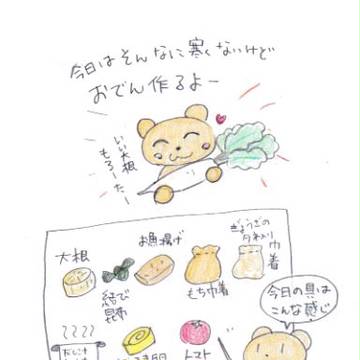 今日はそんなに寒くないけど
おでん作るよー
いい大根
もろーたー
大根
結び
昆布
お魚揚げ
もち巾着
ぎょうざの
タネ入り
巾着
今日の具は
こんな感じ
????
トマト